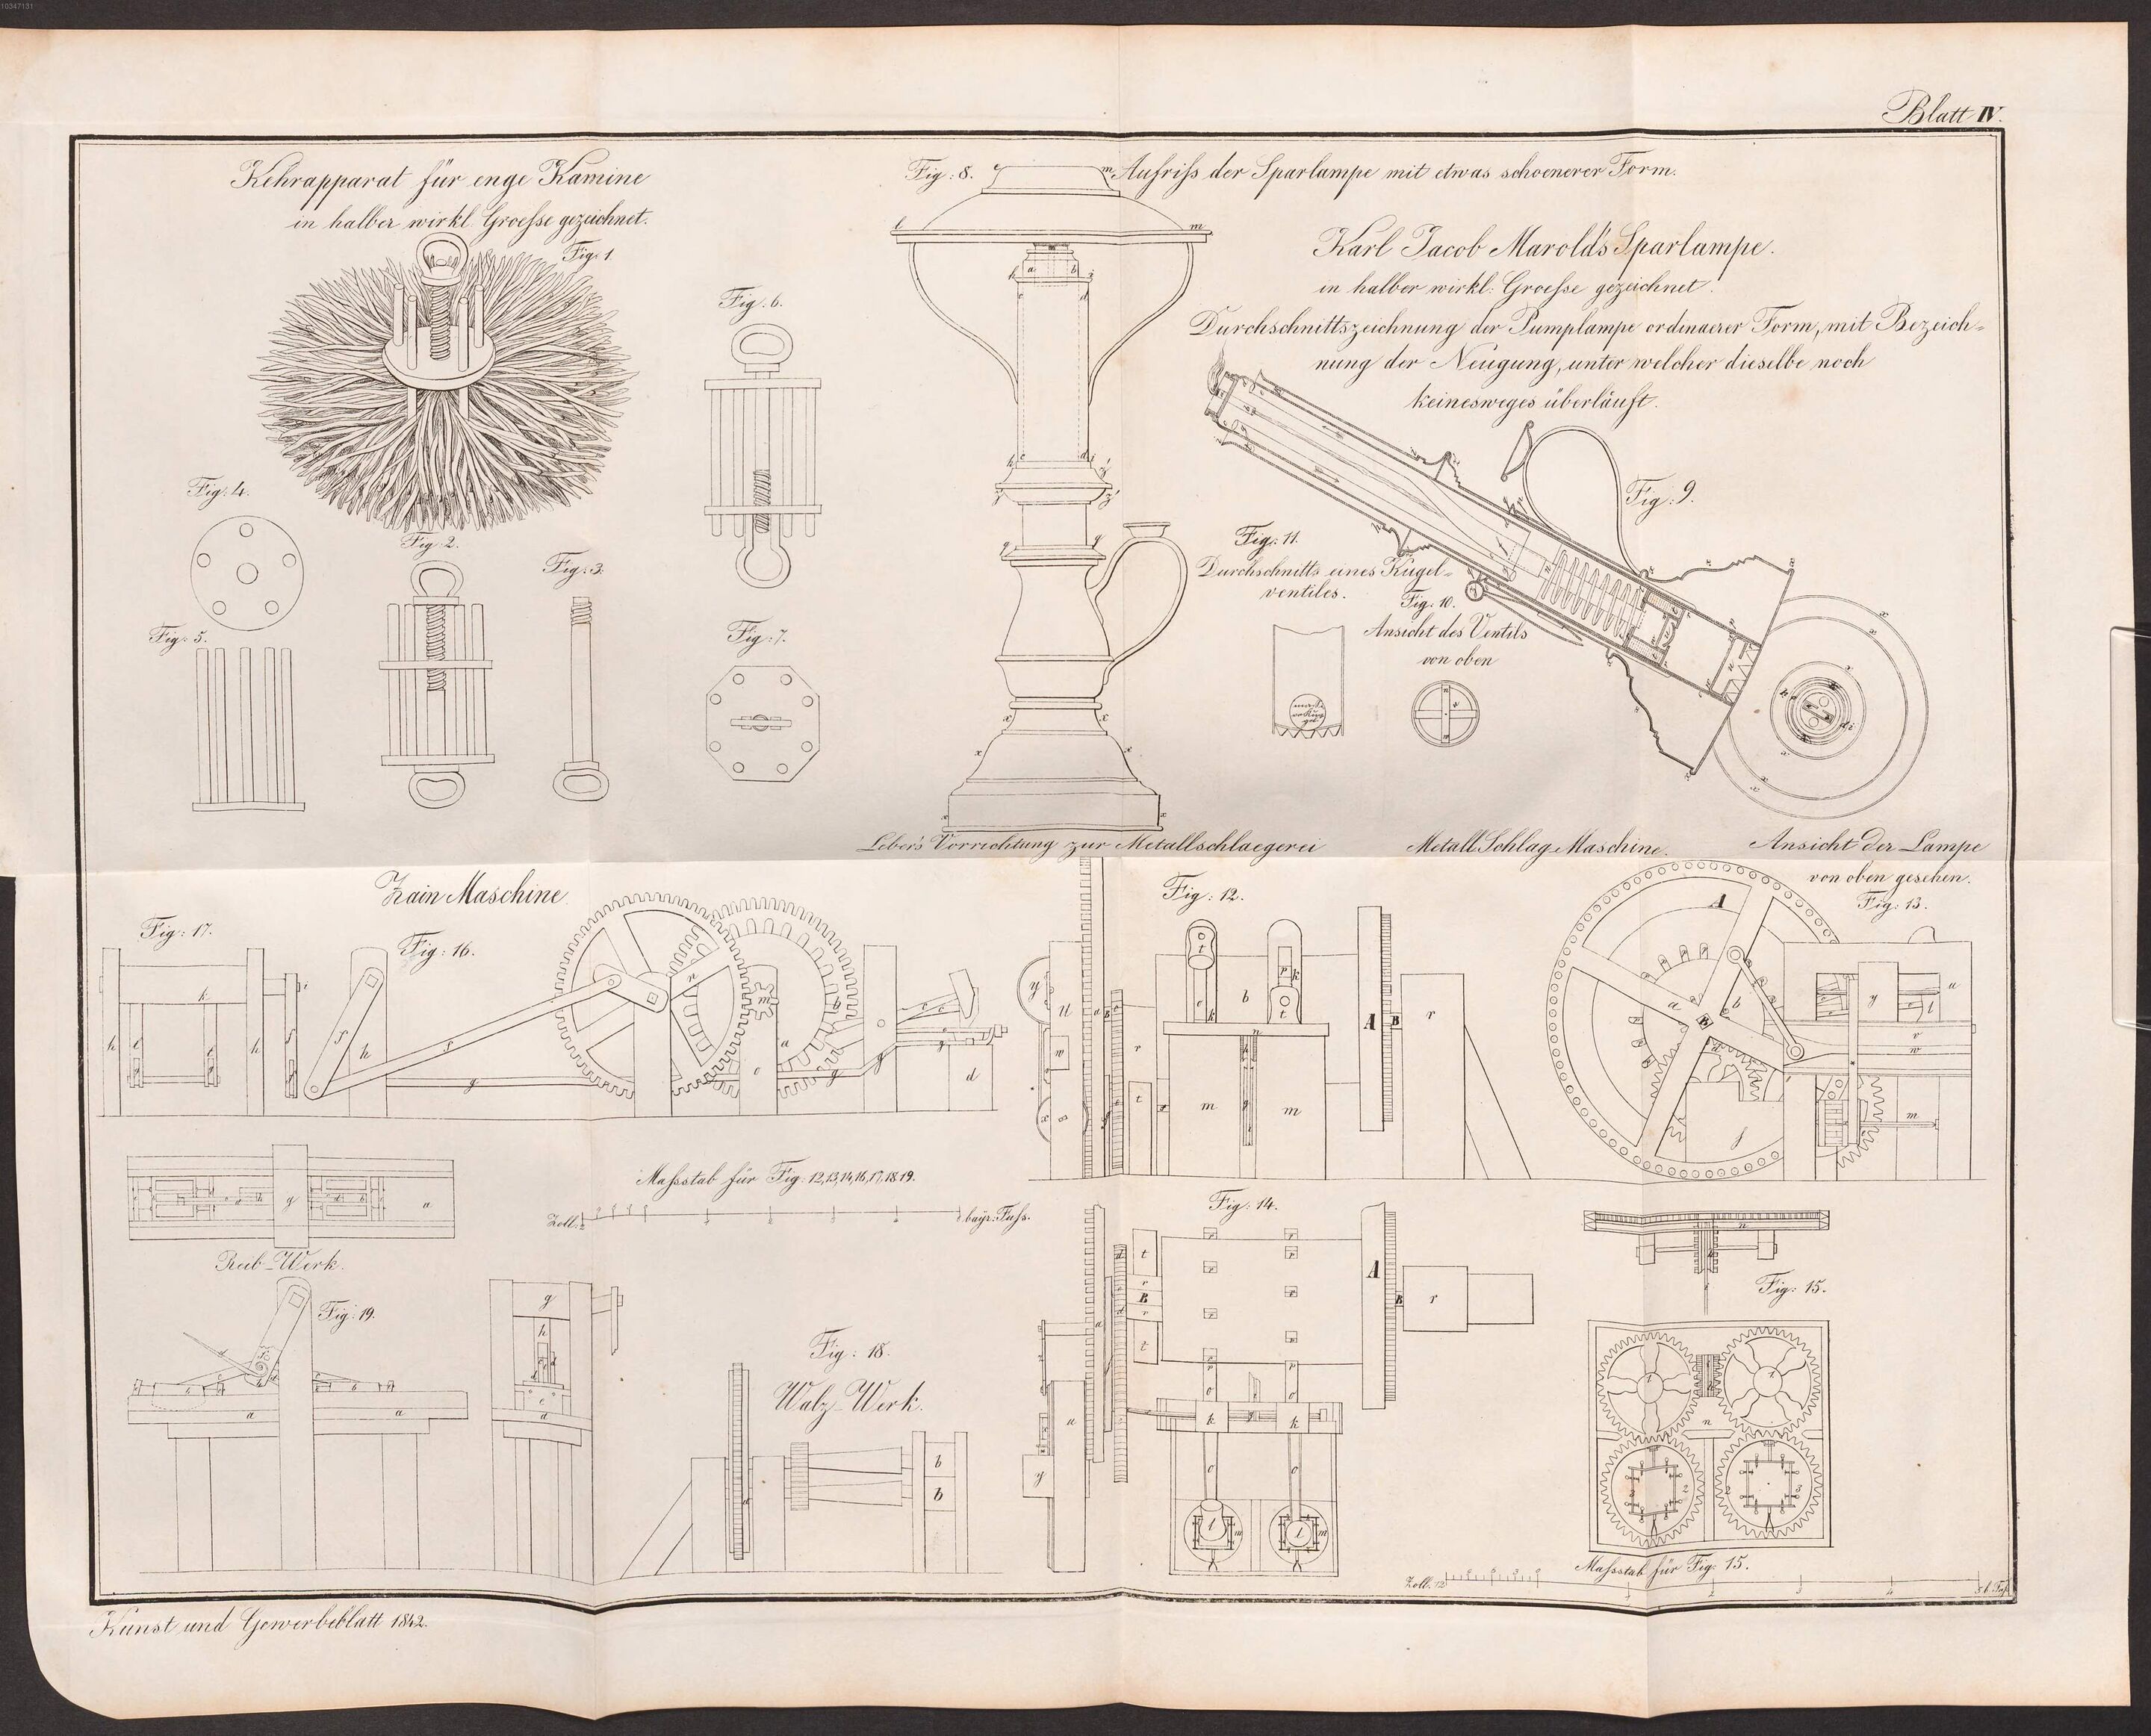 10347131
Blatt IV.
Kehrapparat für enge Kamine
in halber wirkl. Groeſse gezeichnet.
Fig: 1.
Fig: 6.
Fig: 4.
Fig: 2.
Fig: 3.
Fig: 5.
Fig: 7.
Fig: 8.
Aufriſs der Sparlampe mit etwas schoenerer Form.
Karl Jacob Marold's Sparlampe.
in halber wirkl: Groeſse gezeichnet.
Durchschnittszeichnung der Pumplampe ordinaerer Form, mit Bezeich-
nung der Neigung, unter welcher dieselbe noch
keinesweges überläuft.
Fig: 9.
Fig: 11.
Durchschnitts eines Kugel-
ventiles.
Fig: 10.
Ansicht des Ventils
von oben
Leber's Vorrichtung zur Metallschlaegerei
Metall Schlag-Maschine.
Ansicht der Lampe
von oben gesehen.
Zain Maschine.
Fig: 17.
Fig: 16.
Fig: 12.
Fig: 13.
Maſsstab für Fig: 12,13,14,16,17,18.19.
Zoll.
bayr: Fuſs.
Fig: 14.
Fig: 15.
Reib-Werk.
Fig: 19.
Fig: 18.
Walz-Werk.
Maſsstab für Fig: 15.
Zoll. 12
Kunst und Gewerbeblatt 1842.